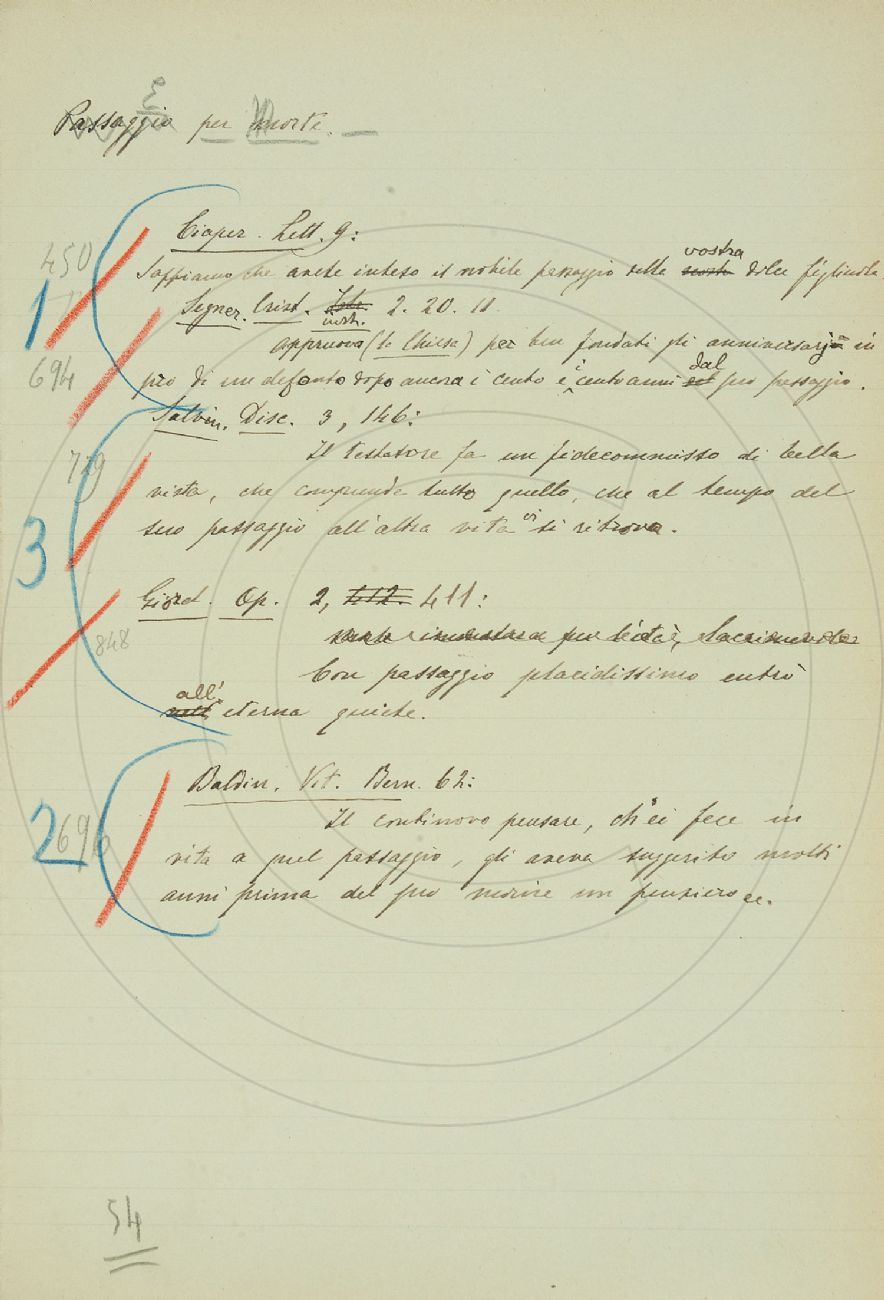 Passaggio per Morte.
450
Cioper. Lett. 9:
Sappiamo che avete inteso il nobile passaggio della vostra dolce figliuola
1
Segner. Crist. instr. 2. 20. 11
694
appruova (la Chiesa) per ben fondati gli anniversarj in
pro di un defonto dopo ancora i cento e i cento anni dal suo passaggio.
Salvin. Disc. 3, 146:
729
Il testatore fa un fidecommisso di bella
vista, che comprende tutto quello, che al tempo del
3
suo passaggio all'altra vita vi si ritrova.
Giord. Op. 2, 411:
848
Con passaggio placidissimo entrò
all' eterna quiete.
Baldin. Vit. Bern. 62:
Il continovo pensare, ch'ei fece in
2
696
vita a quel passaggio, gli aveva suggerito molti
anni prima del suo morire un pensiero ec.
54